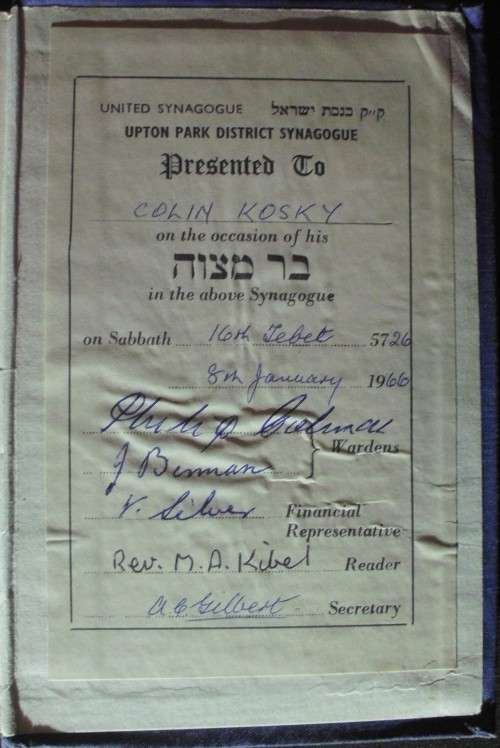 UNITED SYNAGOGUE ק״ק כנסת ישראל
UPTON PARK DISTRICT SYNAGOGUE
Presented To
COLIN KOSKY
on the occasion of his
בר מצוה
in the above Synagogue
on Sabbath 16th Tebet 5726
8th January 1966
Philip
J Binman Wardens
V. Silver Financial
Representative
Rev. M. A. Kibel Reader
A C Gilbert Secretary